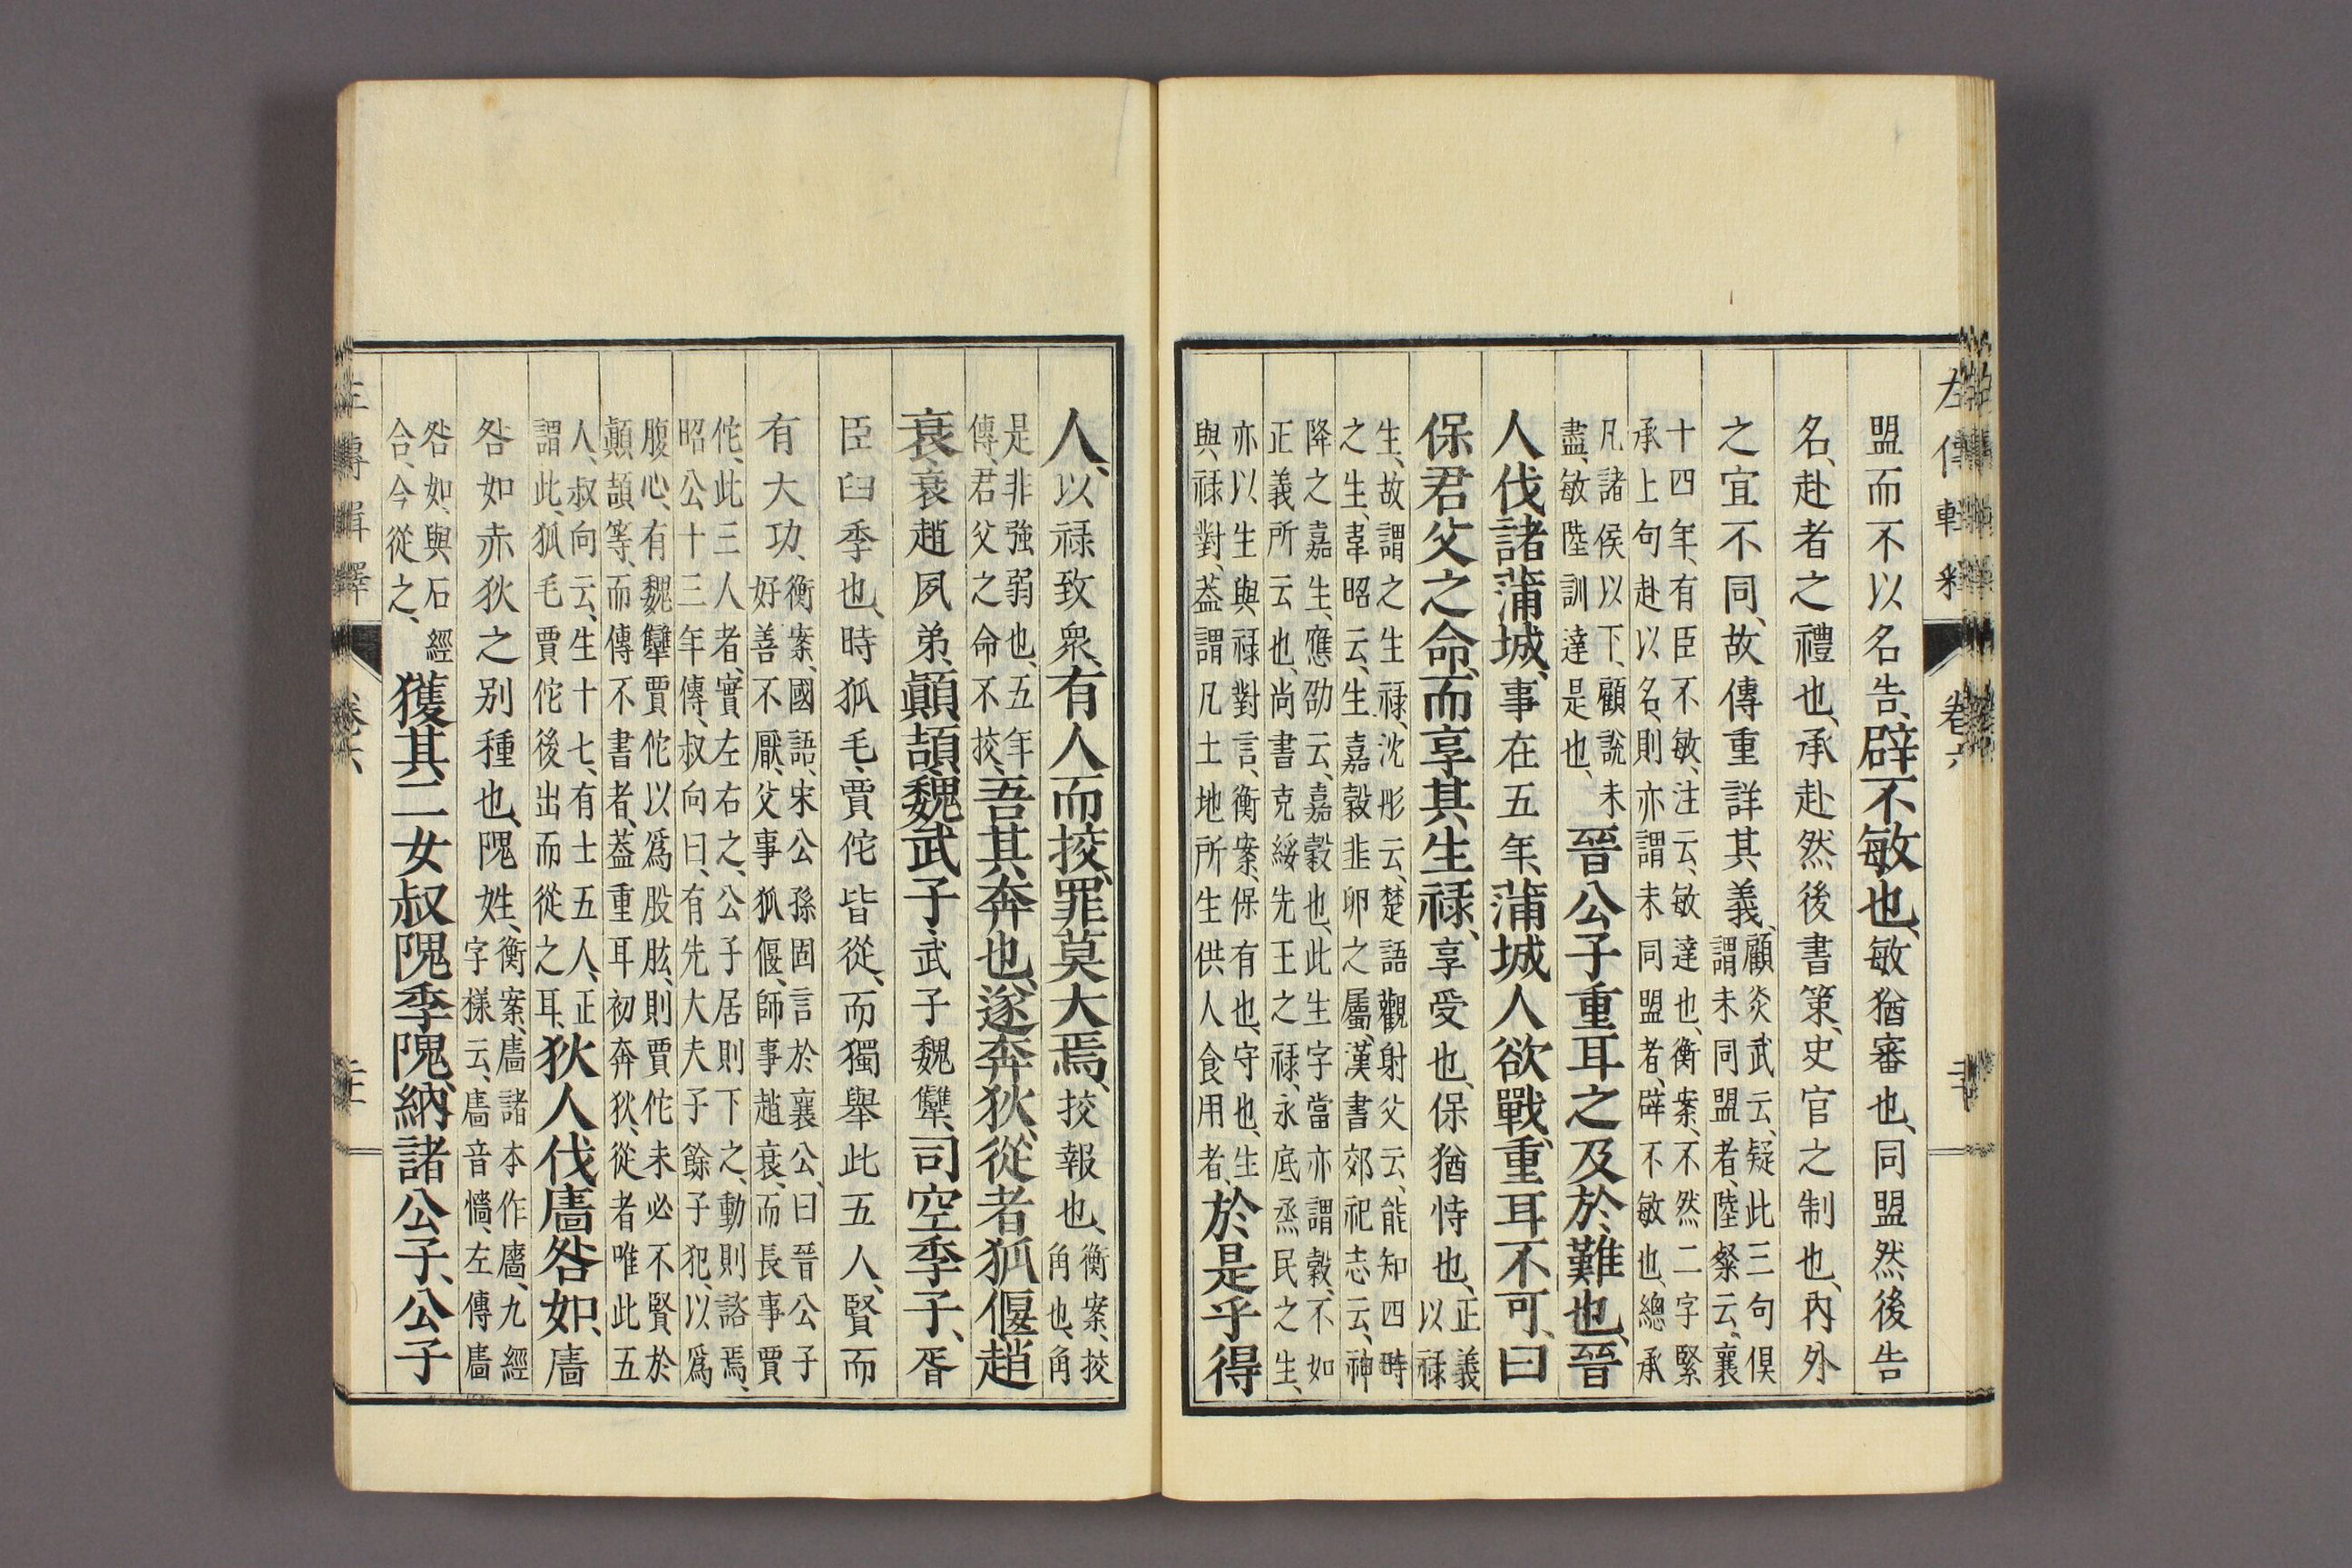 盟而不以名告、辟不敏也、敏猶審也、同盟然後告
名、赴者之禮也、承赴然後書策、史官之制也、內外
之宜不同、故傳重詳其義、顧炎武云、疑此三句俱
謂未同盟者、陸粲云、襄
十四年、有臣不敏、注云、敏達也、衡案、不然二字緊
承上句赴以名、則亦謂未同盟者、辟不敏也、總承
凡諸侯以下、顧說未
盡、敏陸訓達是也、晉公子重耳之及於難也、晉
人伐諸蒲城、事在五年、蒲城人欲戰、重耳不可、曰
保君父之命、而享其生祿、享受也、保猶恃也、正義
以祿
生、故謂之生祿、沈彤云、楚語觀射父云、能知四時
之生、韋昭云、生嘉穀非卵之屬、漢書郊祀志云、神
降之嘉生、應劭云、嘉穀也、此生字當亦謂穀、不如
正義所云也、尚書克綏先王之祿、永底烝民之生、
亦以生與祿對言、衡案、保有也、守也、生
與祿對、蓋謂凡土地所生供人食用者、於是乎得
人、以祿致衆、有人而挍、罪莫大焉、挍報也、衡案、挍
角也、角
是非強弱也、五年
傳、君父之命不挍、吾其奔也、遂奔狄、從者狐偃趙
衰、衰趙夙弟、顚頡、魏武子、武子魏犨、司空季子、胥
臣臼季也、時狐毛、賈佗皆從、而獨舉此五人、賢而
有大功、衡案、國語、宋公孫固言於襄公、曰晉公子
好善不厭、父事狐偃、師事趙衰、而長事賈
佗、此三人者、實左右之、公子居則下之、動則諮焉、
昭公十三年傳、叔向曰、有先大夫子餘子犯、以爲
腹心、有魏犨賈佗以爲股肱、則賈佗未必不賢於
顚頡等、而傳不書者、蓋重耳初奔狄、從者唯此五
人、叔向云、生十七、有士五人、正
謂此、狐毛賈佗後出而從之耳、狄人伐廧咎如、廧
咎如赤狄之別種也、隗姓、衡案、廧諸本作廧、九經
字樣云、廧音牆、左傳廧
咎如、與石經
合、今從之、獲其二女叔隗季隗、納諸公子、公子
左傳輯釋
卷六